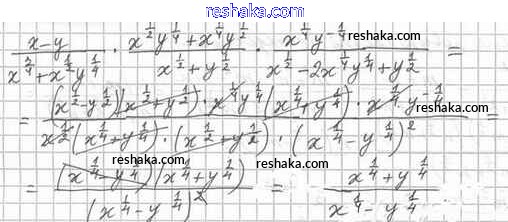 reshaka.com
(x-y)/(x^(3/4)+x^(1/2)y^(1/4)) · (x^(1/2)y^(1/4)+x^(1/4)y^(1/2))/(x^(1/2)+y^(1/2)) · (x^(1/4)y^(-1/4))/(x^(1/2)-2x^(1/4)y^(1/4)+y^(1/2)) = reshaka.com
= ((x^(1/2)-y^(1/2))(x^(1/2)+y^(1/2))·x^(1/4)y^(1/4)(x^(1/4)+y^(1/4))·x^(1/4)·y^(-1/4))/(x^(1/2)(x^(1/4)+y^(1/4))·(x^(1/2)+y^(1/2))·(x^(1/4)-y^(1/4))^2) =
reshaka.com reshaka.com reshaka.com
= ((x^(1/4)-y^(1/4))(x^(1/4)+y^(1/4)))/((x^(1/4)-y^(1/4))^2) = (x^(1/4)+y^(1/4))/(x^(1/4)-y^(1/4))